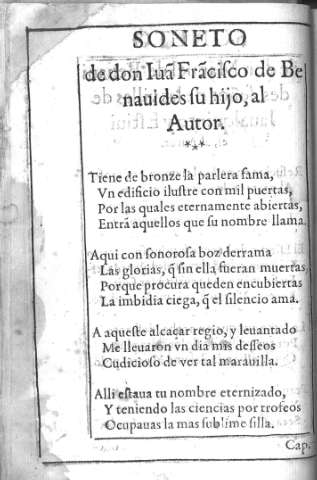 SONETO
de don Iuā Frācisco de Be
nauides su hijo, al
Autor.
Tiene de bronze la parlera fama,
Vn edificio ilustre con mil puertas,
Por las quales eternamente abiertas,
Entrā aquellos que su nombre llama.
Aqui con sonorosa boz derrama
Las glorias, q̄ sin ella fueran muertas,
Porque procura queden encubiertas
La imbidia ciega, q̄ el silencio ama.
A aqueste alcaçar regio, y leuantado
Me lleuaron vn dia mis desseos
Cudicioso de ver tal marauilla.
Alli estaua tu nombre eternizado,
Y teniendo las ciencias por trofeos
Ocupauas la mas sublime silla.
Cap.